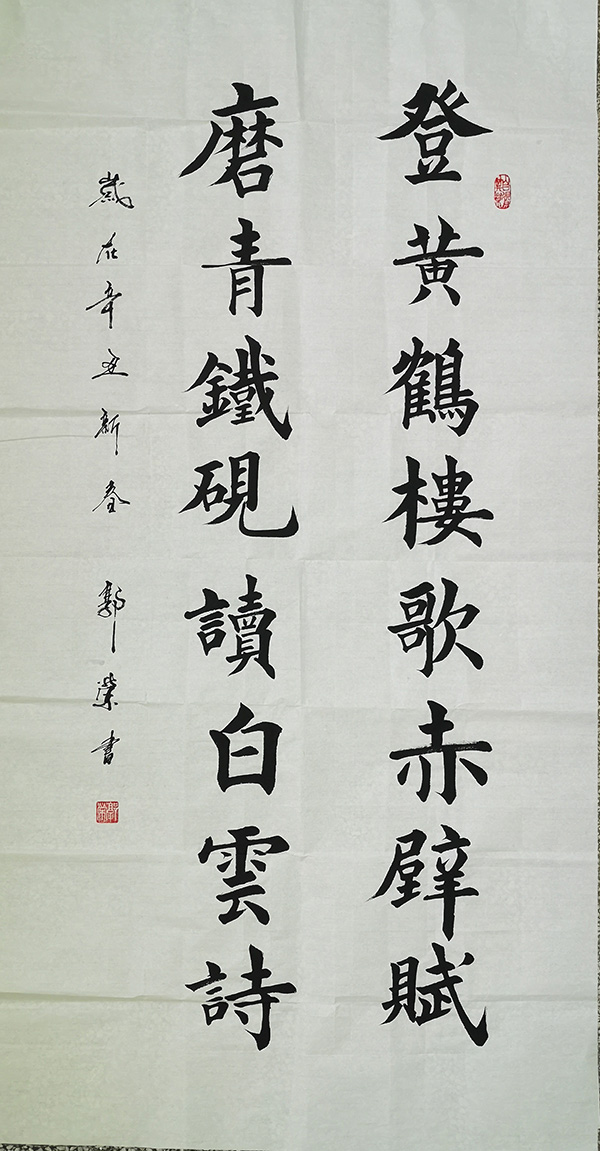 登黄鶴樓歌赤壁賦
磨青鐵硯讀白雲詩
歲在辛丑新春 郭榮書